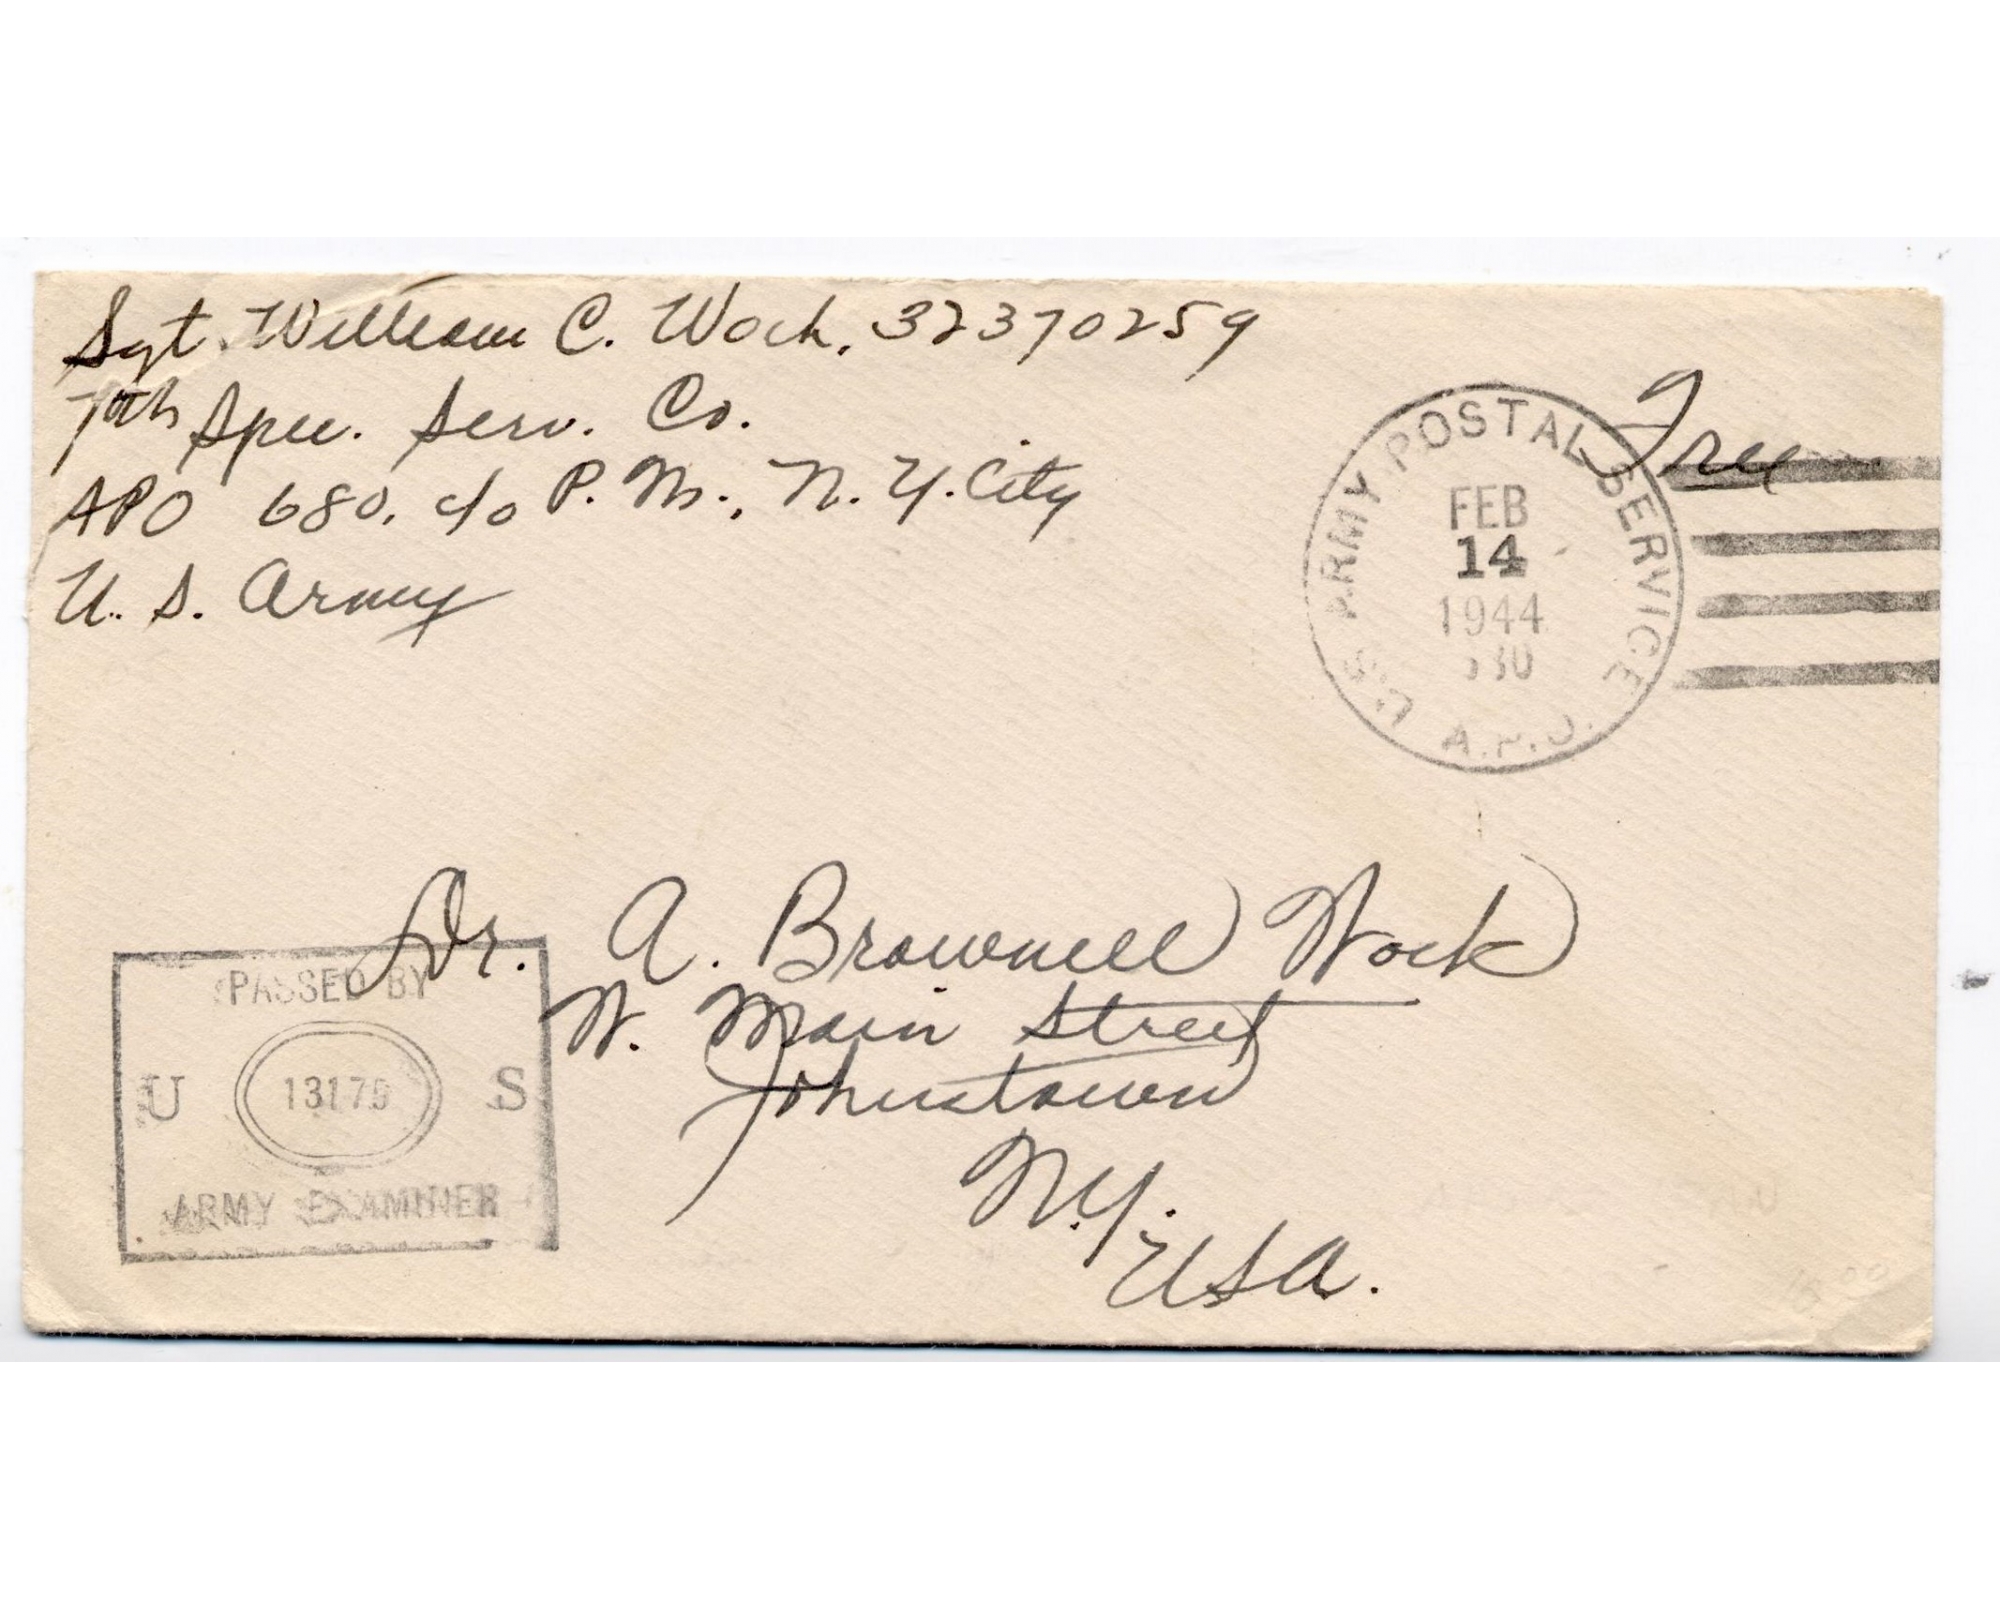 Sgt. William C. Wock, 32370259
7th Spec. Serv. Co.
APO 680, c/o P. M., N. Y. City
U. S. Army
Free
U.S. ARMY POSTAL SERVICE
FEB
14
1944
A.P.O.
Dr. A. Brownell Wock
W. Main Street
Johnstown
N.Y.
USA.
PASSED BY
U 13175 S
ARMY EXAMINER